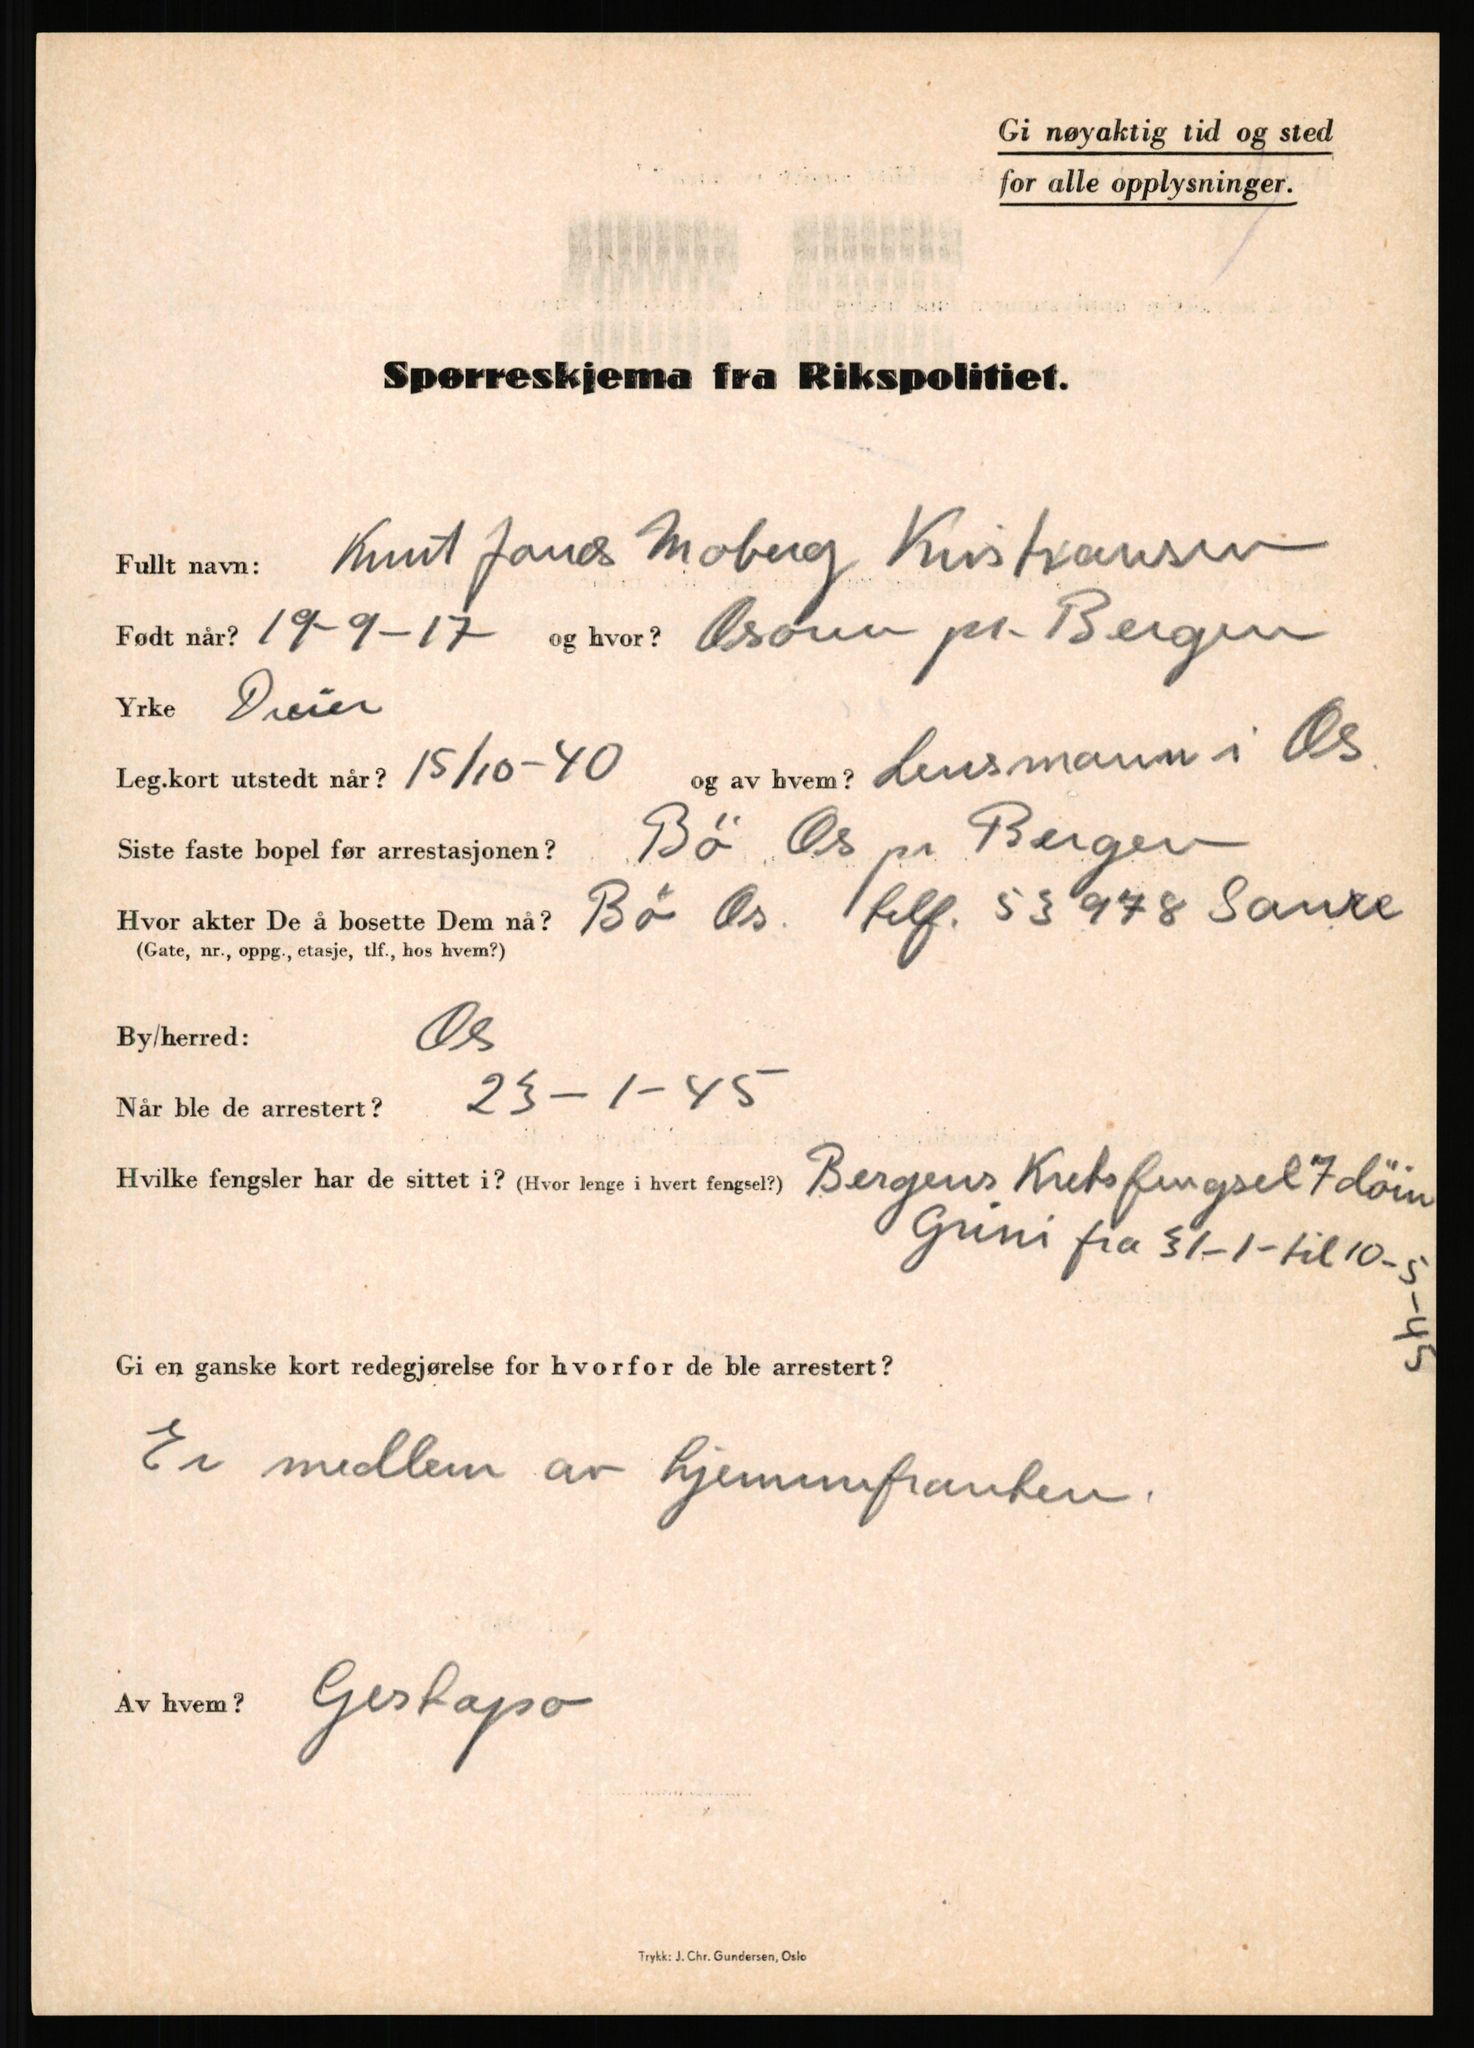 Gi nøyaktig tid og sted
for alle opplysninger.
Spørreskjema fra Rikspolitiet.
Fullt navn: Knut Jonas Moberg Kristiansen
Født når? 19-9-17 og hvor? Osøren pr. Bergen
Yrke Dreier
Leg.kort utstedt når? 15/10-40 og av hvem? Lensmann i Os.
Siste faste bopel før arrestasjonen? Bö Os pr Bergen
Hvor akter De å bosette Dem nå? Bö Os. telf. 53978 Saure
(Gate, nr., oppg., etasje, tlf., hos hvem?)
By/herred: Os
Når ble de arrestert? 23-1-45
Hvilke fengsler har de sittet i? (Hvor lenge i hvert fengsel?) Bergens Kretsfengsel 7 döin
Grini fra 31-1- til 10-5-45
Gi en ganske kort redegjørelse for hvorfor de ble arrestert?
Er medlem av hjemmefronten.
Av hvem? Gestapo
Trykk: J. Chr. Gundersen, Oslo